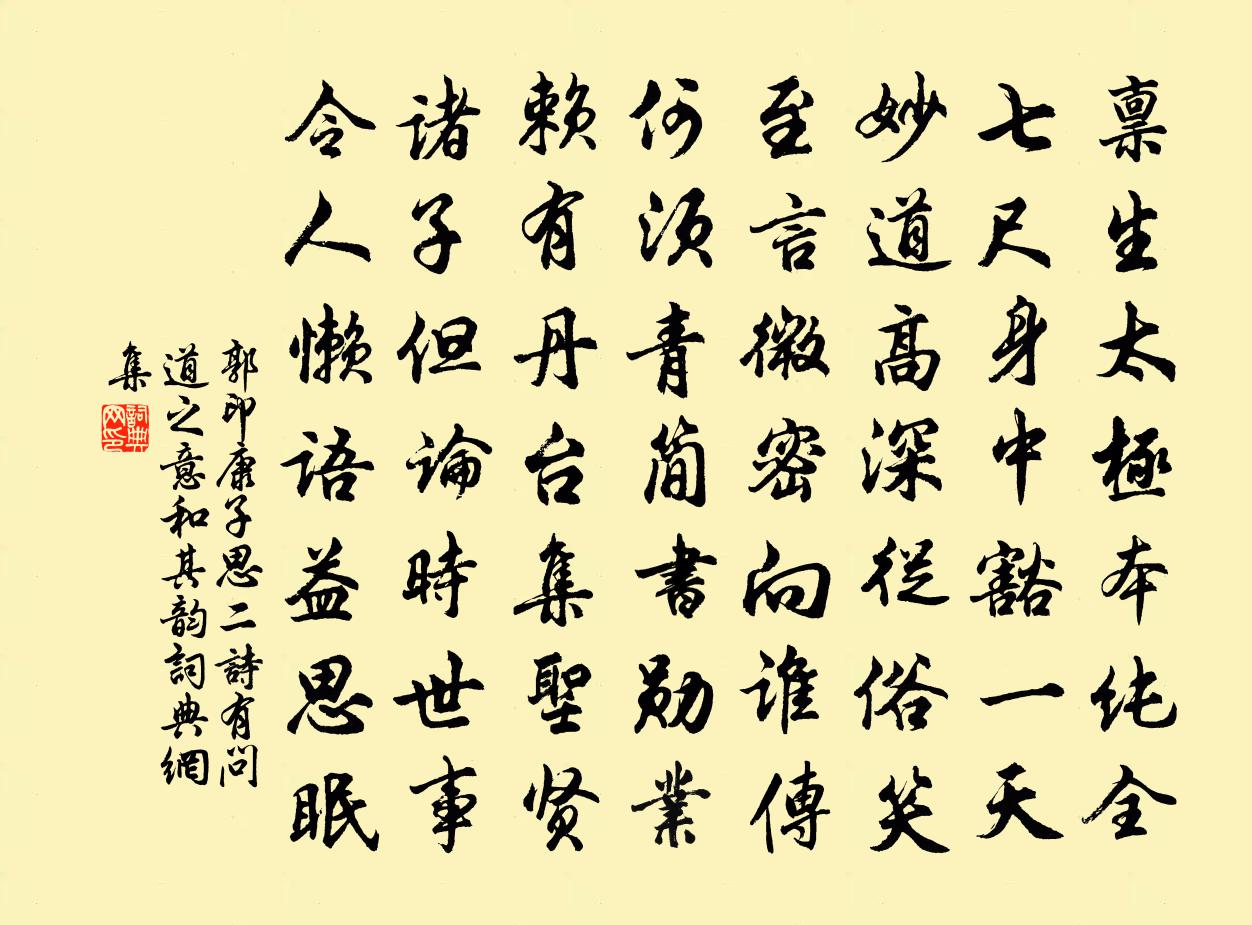 禀生太極本纯全
七尺身中豁一天
妙道高深從俗笑
至言微密向谁傳
何须青简書勋業
赖有丹台集聖贤
诸子但論時世事
令人懒语益思眠
郭印康子思二詩有问
道之意和其韵詞典網
集
詞典网印